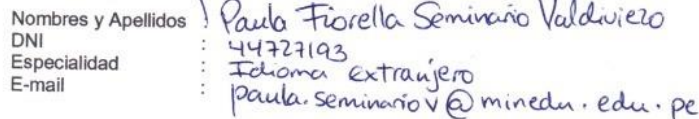 Nombres y Apellidos : Paula Fiorella Seminario Valdiviezo
DNI : 44727193
Especialidad : Idioma extranjero
E-mail : paula.seminariov@minedu.edu.pe